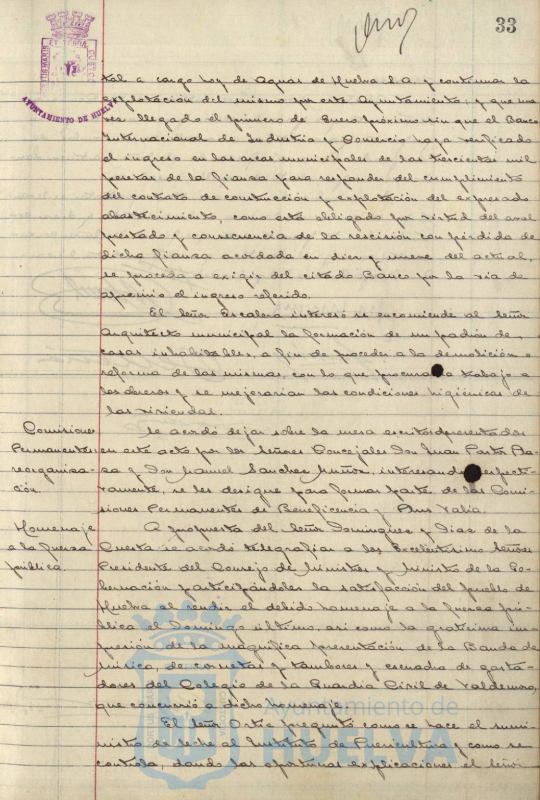 33
AYUNTAMIENTO DE HUELVA
tal a cargo hoy de Aguas de Huelva S.A. y continuar la
explotación del mismo por este Ayuntamiento; y que una
vez llegado el primero de Enero próximo sin que el Banco
Internacional de Industria y Comercio haya verificado
el ingreso en las arcas municipales de las trescientas mil
pesetas de la fianza para responder del cumplimiento
del contrato de construcción y explotación del expresado
abastecimiento, como está obligado por virtud del aval
prestado y consecuencia de la rescisión con pérdida de
dicha fianza acordada en diez y nueve del actual,
se proceda a exigir del citado Banco por la vía de
apremio el ingreso referido.
El Señor Escalera interesó se encomiende al Señor
Arquitecto municipal la formación de un padrón de
casas inhabitables, a fin de proceder a la demolición o
reforma de las mismas, con lo que procuraría trabajo a
los obreros y se mejorarían las condiciones higiénicas de
las viviendas.
Comisiones
Permanentes:
reorganiza-
ción.
Se acordó dejar sobre la mesa escritos presentados
en este acto por los Señores Concejales Don Juan
y Don Manuel Sanchez Muñoz, interesando respecti-
vamente, se les designe para formar parte de las Comi-
siones Permanentes de Beneficencia y Plus Valia.
Homenaje
a la fuerza
pública.
A propuesta del Señor Dominguez y Diaz de la
Cuesta se acordó telegrafiar a los Excelentísimo Señores
Presidente del Consejo de Ministros y Ministro de la Go-
bernación participándoles la satisfacción del pueblo de
Huelva al rendir el debido homenaje a la fuerza pú-
blica el Domingo último, así como la gratísima im-
presión de la magnífica presentación de la Banda de
música, de cornetas y tambores y escuadra de gasta-
dores del Colegio de la Guardia Civil de Valdemoro,
que concurrió a dicho homenaje.
El Señor Ortiz preguntó como se hace el sumi-
nistro de leche al Instituto de Puericultura y como se
controla, dando las oportunas explicaciones el Señor
Ayuntamiento de
HUELVA